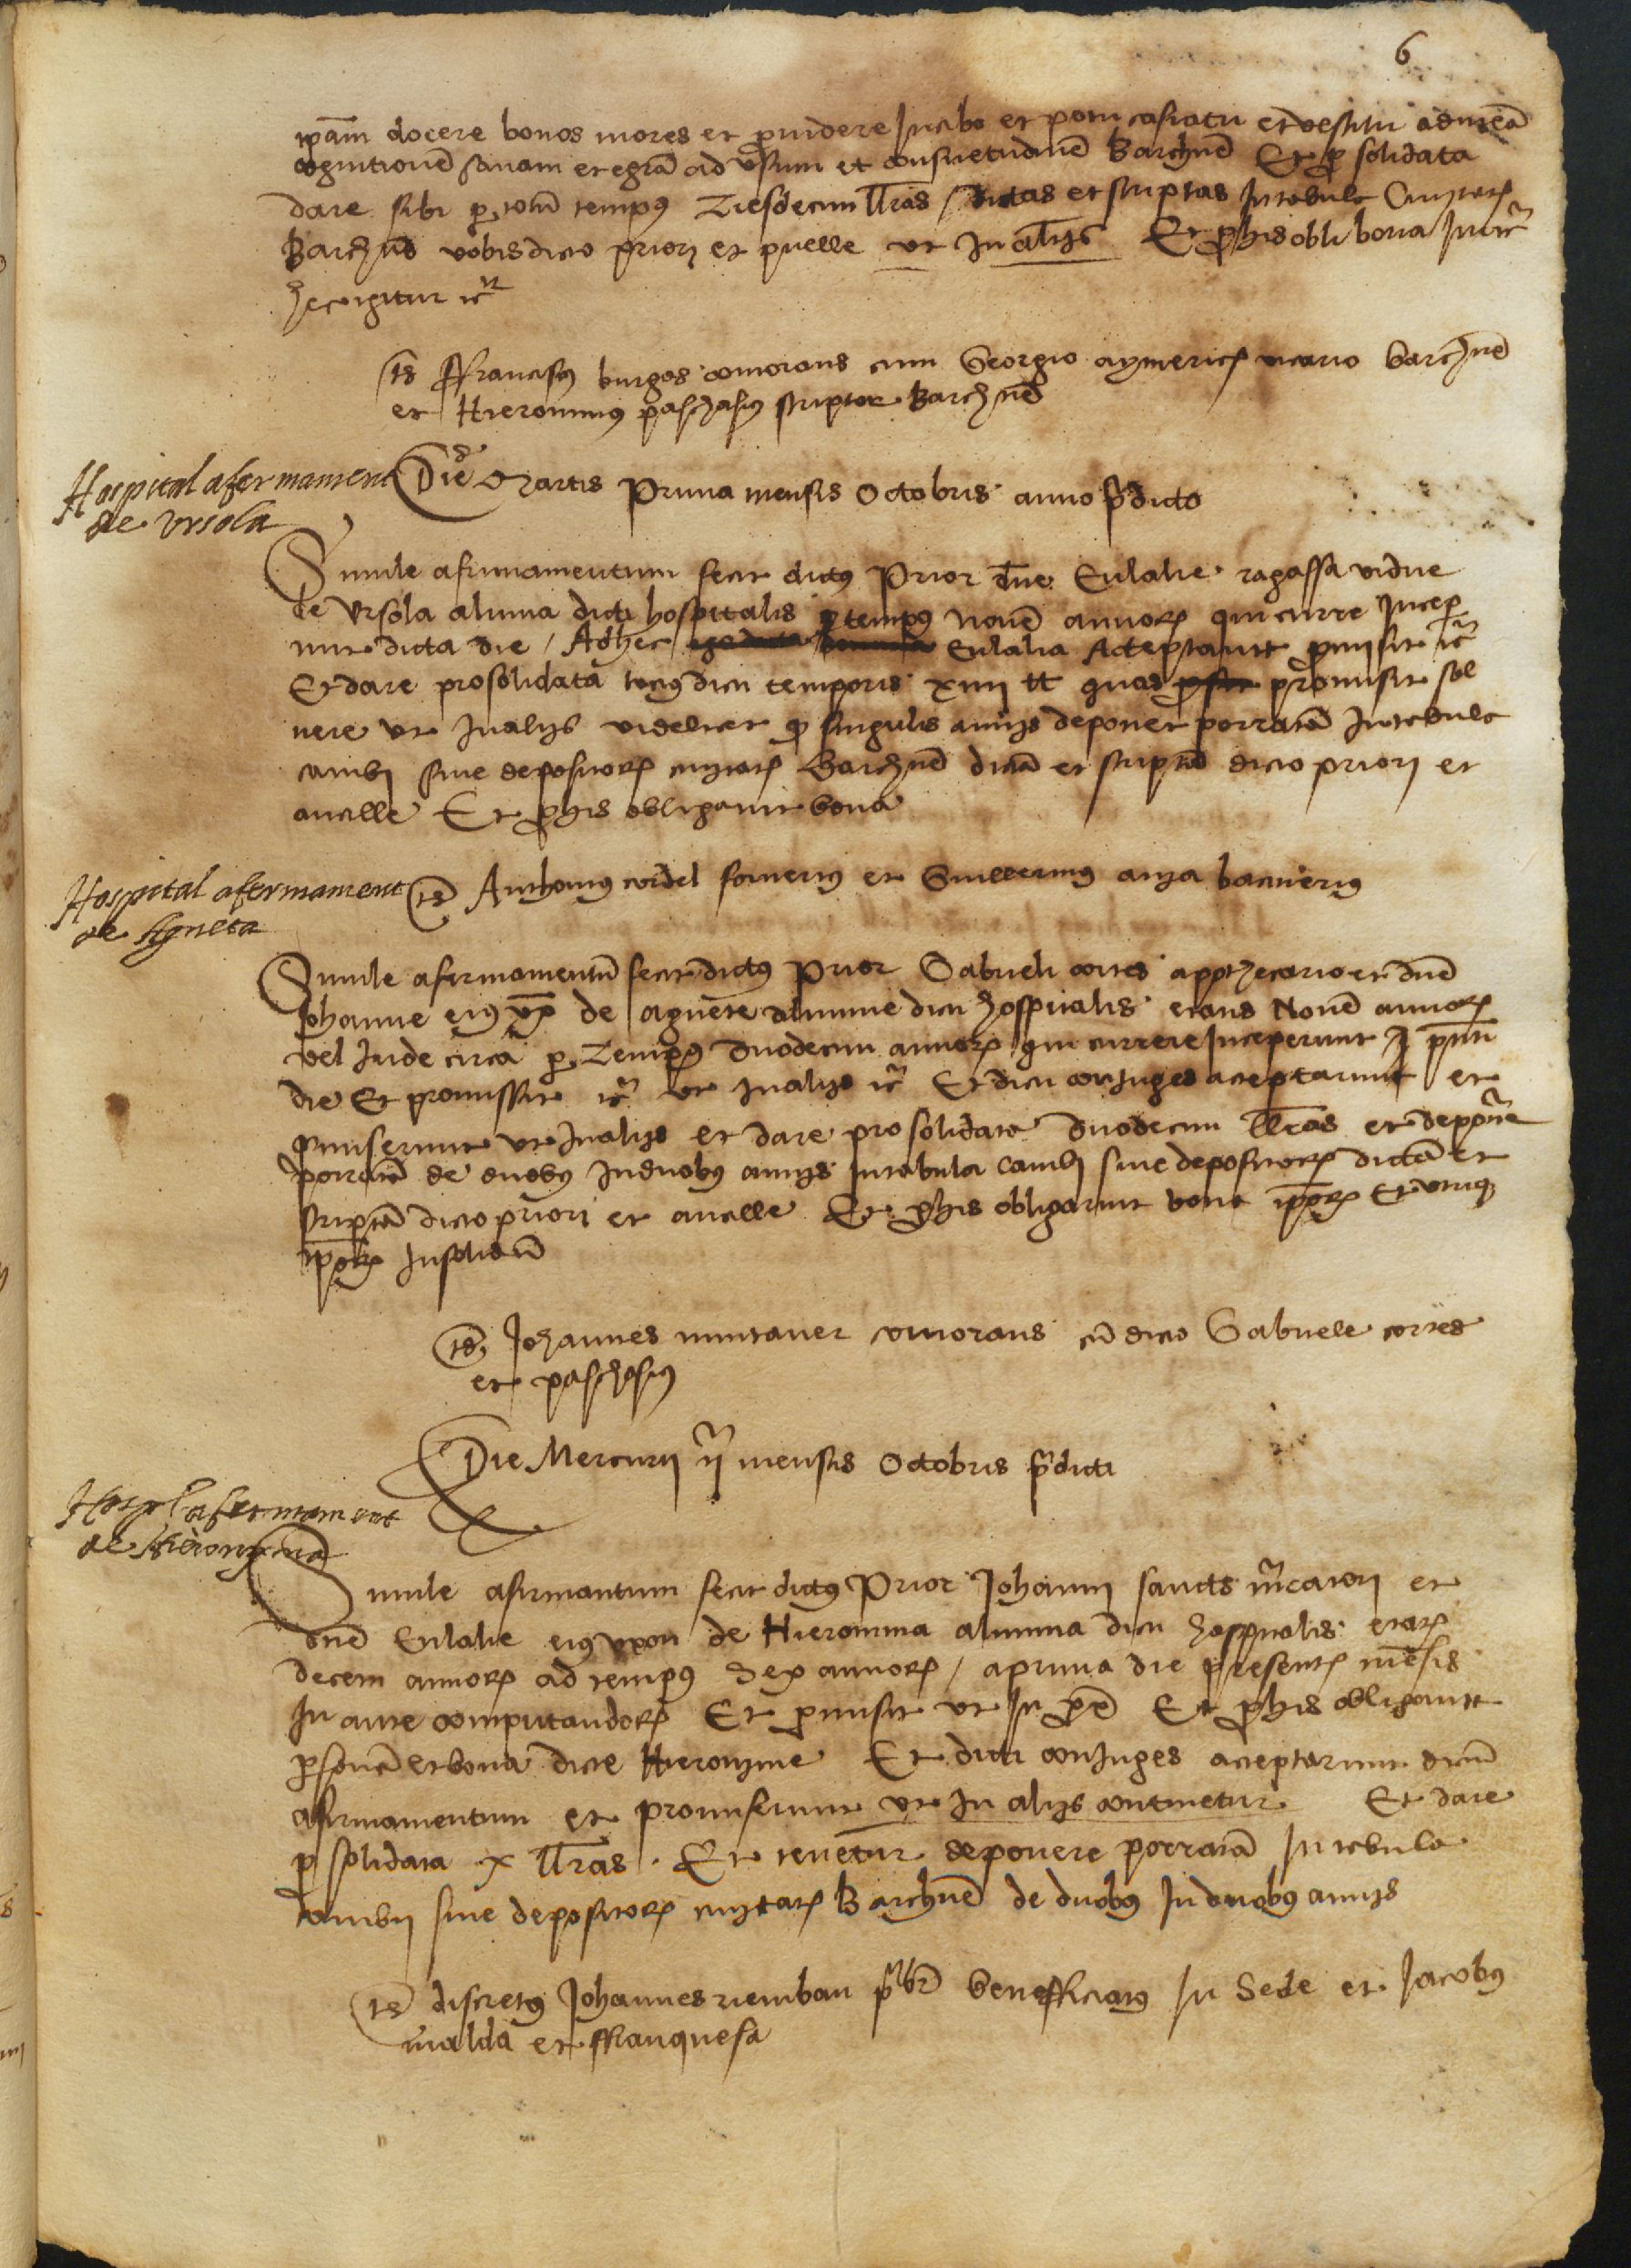 6
ipam docere bonos mores et providere In cibo et potu casiatu et vestitu ad meã
cognitionẽ sanam et egrã ad usum et consuetudinẽ Barchnẽ Et p solidata
dare sibi p totũ tempus tresdecim llras / dictas et scriptas In tabula Civitatis
Barchnẽ vobis dicto priori et puelle ut In alijs Et p his obli bona In
hec igitur
ts ffranciscus burges comorans cum Georgio aymerich vicario barchnẽ
et Hieronimus paschasius scriptor Barchnẽ
Hospital afermament
de Ursola
Die Martis Prima mensis Octobris anno pdicto
Simile afirmamentum fecit dictus Prior dne Eulalie ragassa vidue
de Ursola alumna dicti hospitalis p tempus novẽ annorum qui curre Incep
runt dicta die / Adhec Eulalia Acceptavit promisit
Et dare pro solidata tocius dicti temporis xiiii ll quas promisit sol
vere ut In alijs videlicet q singulis annis deponet porratã In tabula
cambij sive depositorum civitatis Barchnẽ dictã et scriptã dicto priori et
ancille Et p his obligavit bona
Hospital afermament
de Agneta
ts Anthonius cordel fornerius et Guillermus
Simile afermamentũ fecit dictus Prior Gabrieli cortes appothecario et dnẽ
Johanne eius ux de agnete alumne dicti hospitalis etatis Novẽ annorum
vel Inde circa p tempus duodecim annorum qui currere Inceperunt pnti
die Et promissit ut In alijs Et dicti conjuges aceptarunt et
promiserunt ut In alijs et dare pro solidata duodecim llras et depponere
porratã de duobus In duobus annijs In tabula cambij sive depositorum dictã et
scriptã dicto priori et ancille Et p his obligarunt bona ipsorum Et utriusque
ipsorum Insolidũ
ts Johannes muntaner comorans cũ dicto Gabriele cortes
et paschasius
Die Mercurii ij mensis Octobris pdicti
Hospl afermament
de Hieronyma
Simile afirmantum fecit dictus Prior Johanni sancts mercatori et
dnẽ Eulalie eius uxori de Hieronima alumna dicti hospitalis etatis
decem annorum ad tempus Sex annorum / a prima die presentis mẽsis
In ante computandorum Et promisit ut In Et p his obligavit
psonã et bona dicte Hieronyme Et dicti conjuges acceptarunt dictũ
afirmamentum et promiserunt ut In alijs continetur Et dare
p solidata x llras. Et tenẽtur deponere porratã In tabula
cambij sive depositorum civitatis Barchnẽ de duobus In duobus annijs
ts discretus Johannes riembau pbr benefficiatus In Sede et Jacobus
malda et ffranquesa